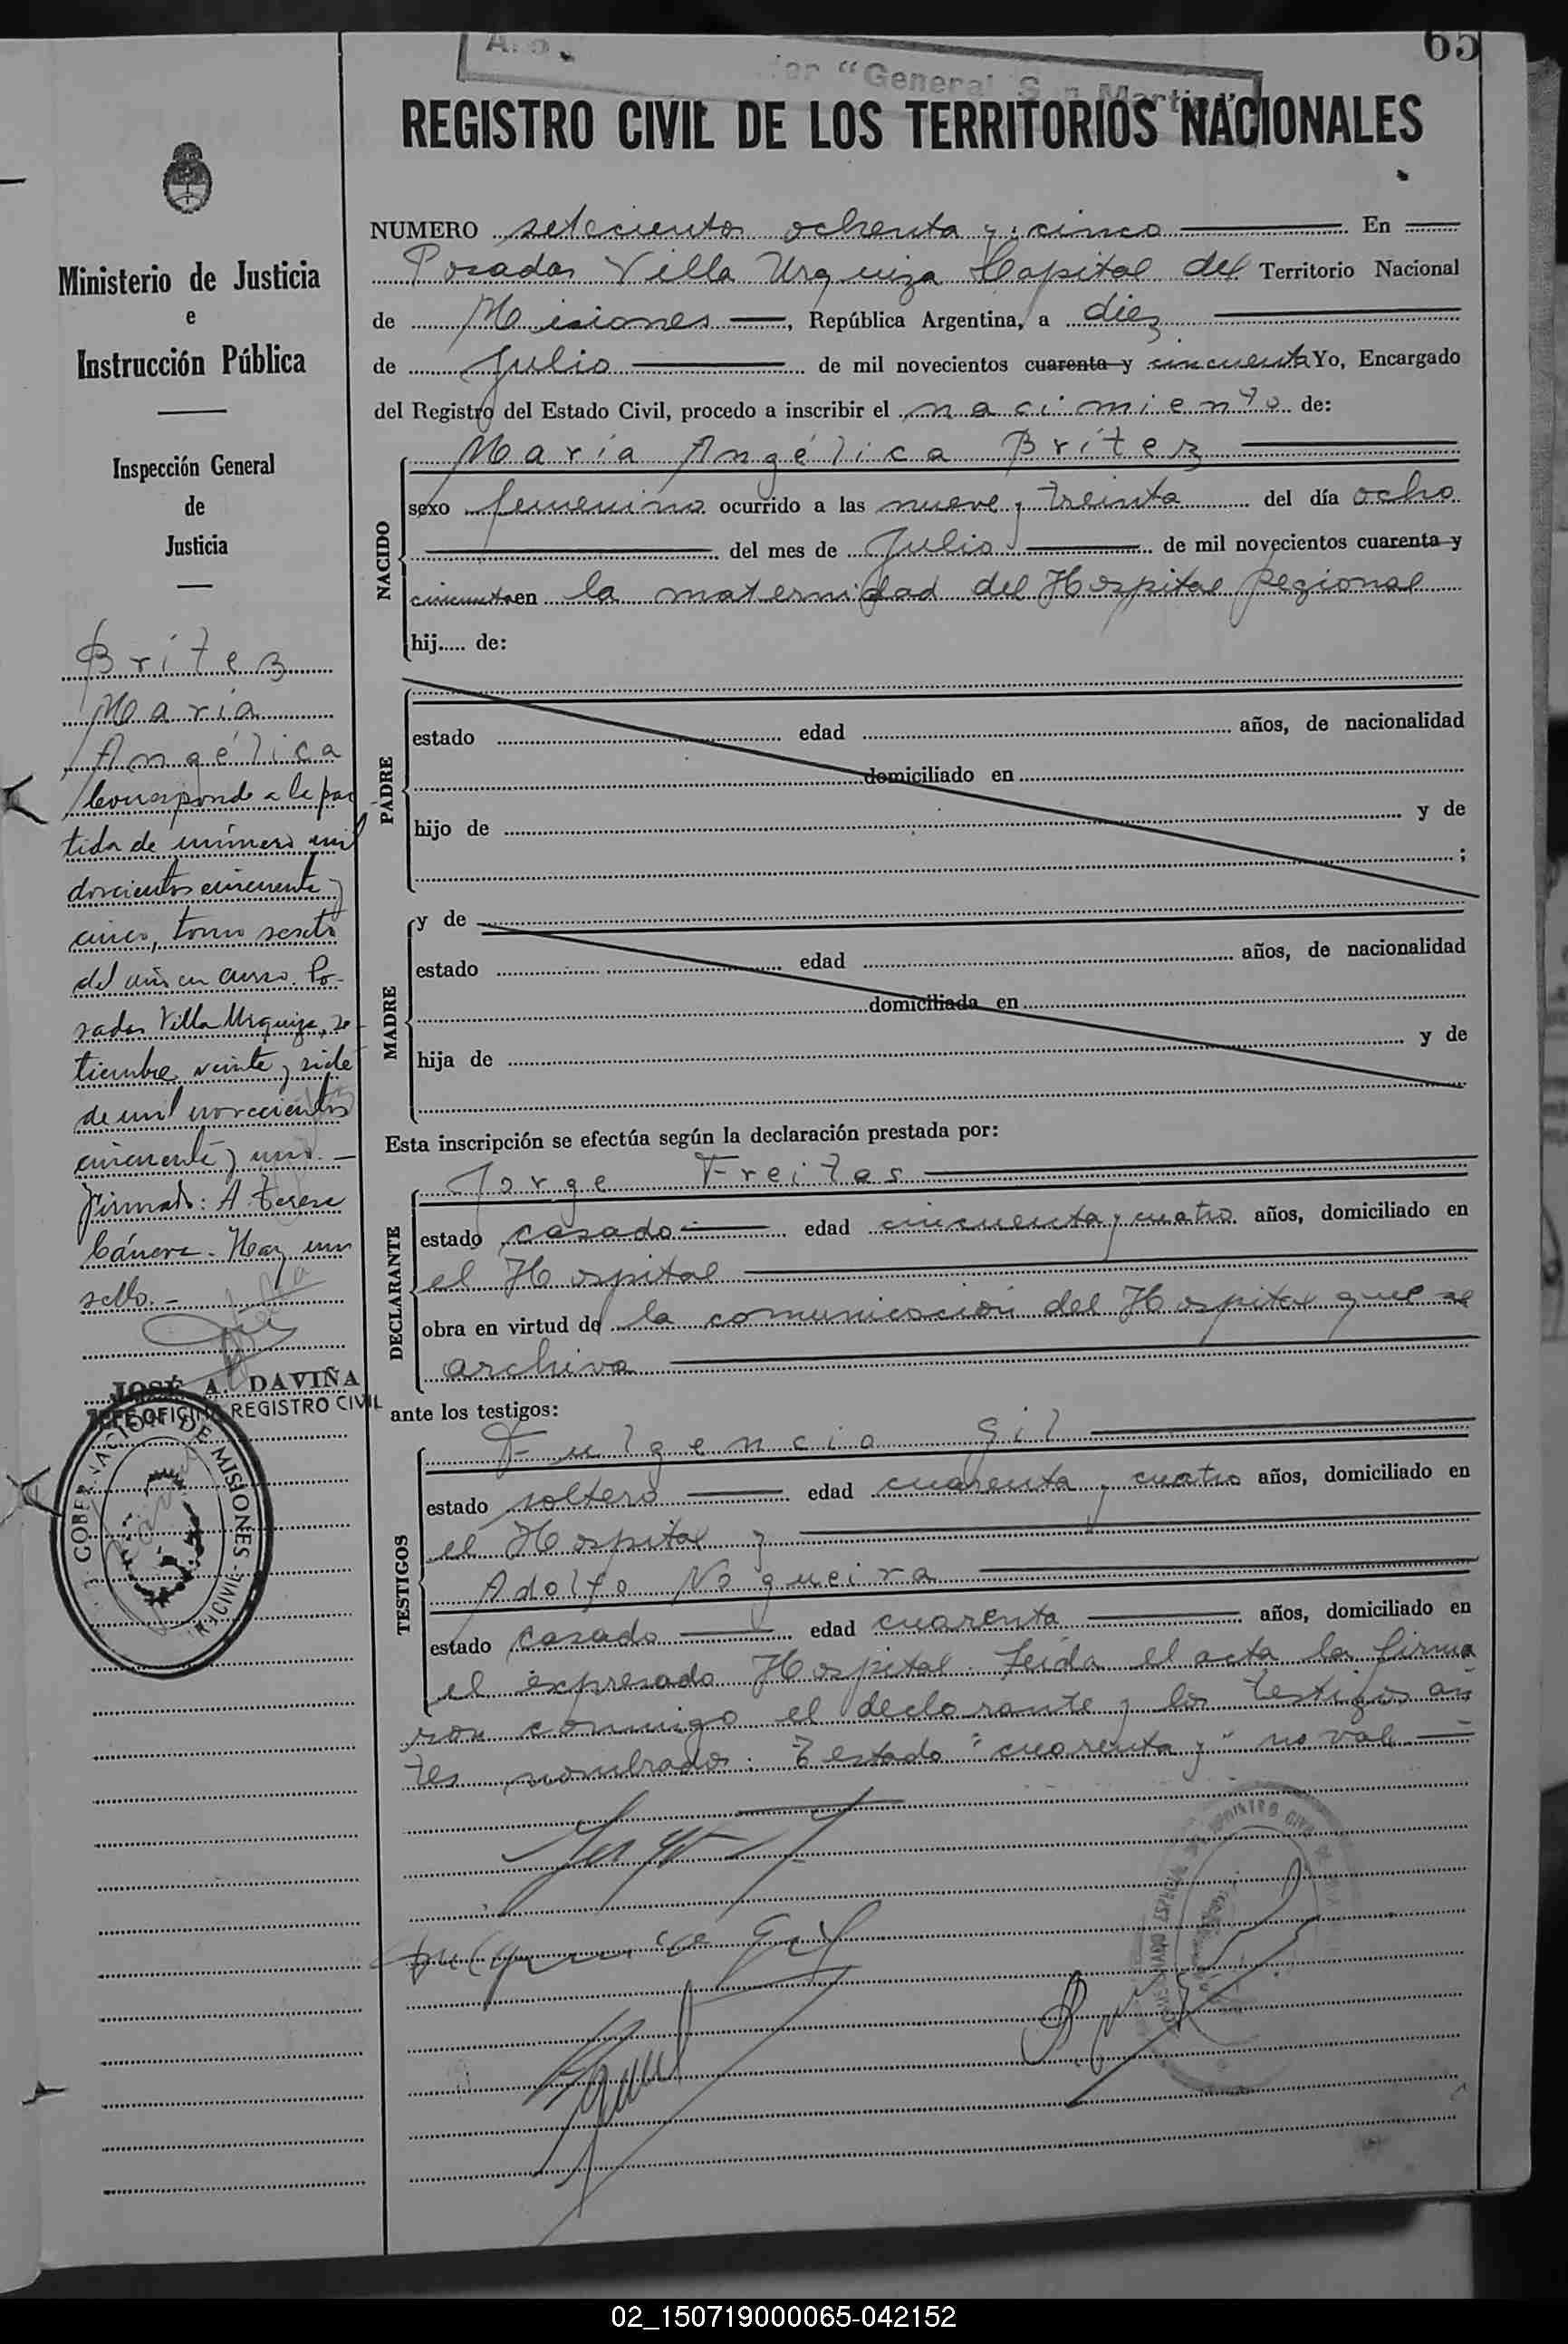 65
"General San Martín"
REGISTRO CIVIL DE LOS TERRITORIOS NACIONALES
NUMERO setecientos ochenta y cinco En
Posadas Villa Urquiza Capital del Territorio Nacional
de Misiones, República Argentina, a diez
de Julio de mil novecientos cuarenta y cincuenta Yo, Encargado
del Registro del Estado Civil, procedo a inscribir el nacimiento de:
María Angélica Brítez
NACIDO
sexo femenino ocurrido a las nueve y treinta del día ocho
del mes de Julio de mil novecientos cuarenta y
cincuenta en la maternidad del Hospital Regional
hij..... de:
PADRE
estado edad años, de nacionalidad
domiciliado en
hijo de y de
;
MADRE
y de
estado edad años, de nacionalidad
domiciliada en
hija de y de
Esta inscripción se efectúa según la declaración prestada por:
DECLARANTE
Jorge Freitas
estado casado edad cincuenta y cuatro años, domiciliado en
el Hospital
obra en virtud de la comunicación del Hospital que se
archiva
ante los testigos:
TESTIGOS
Fulgencio Gil
estado soltero edad cuarenta y cuatro años, domiciliado en
el Hospital y
Adolfo Nogueira
estado casado edad cuarenta años, domiciliado en
el expresado Hospital. Leída el acta la firma
ron conmigo el declarante y los testigos an
tes nombrados. Testado "cuarenta y" no vale.
Gil
Ministerio de Justicia
e
Instrucción Pública
Inspección General
de
Justicia
Brítez
María
Angélica
Corresponde a la par
tida de número mil
doscientos cincuenta y
cinco, tomo sexto
del año en curso. Po-
sadas Villa Urquiza, se-
tiembre veinte y siete
de mil novecientos
cincuenta y uno.-
Firmado: A Teresa
Cánera. Hay un
sello.-
JOSÉ A. DAVIÑA
JEFE OFICINA REGISTRO CIVIL
GOBERNACION DE MISIONES
CIVIL
02_150719000065-042152